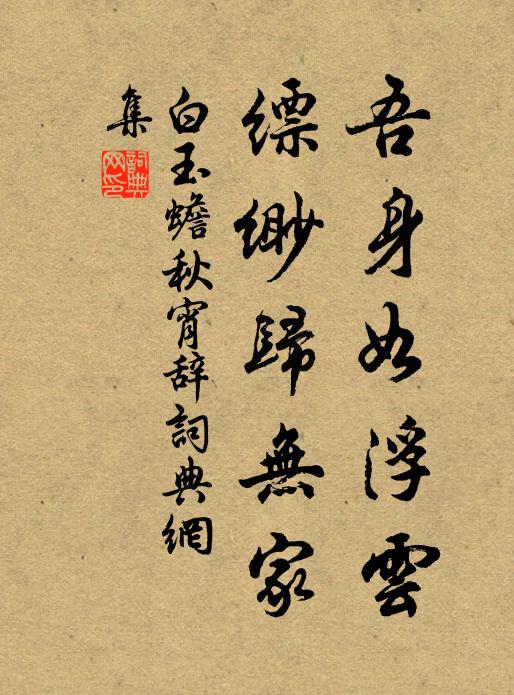 吾身如浮雲
縹緲歸無家
白玉蟾秋宵辞詞典網
集
詞典
网印